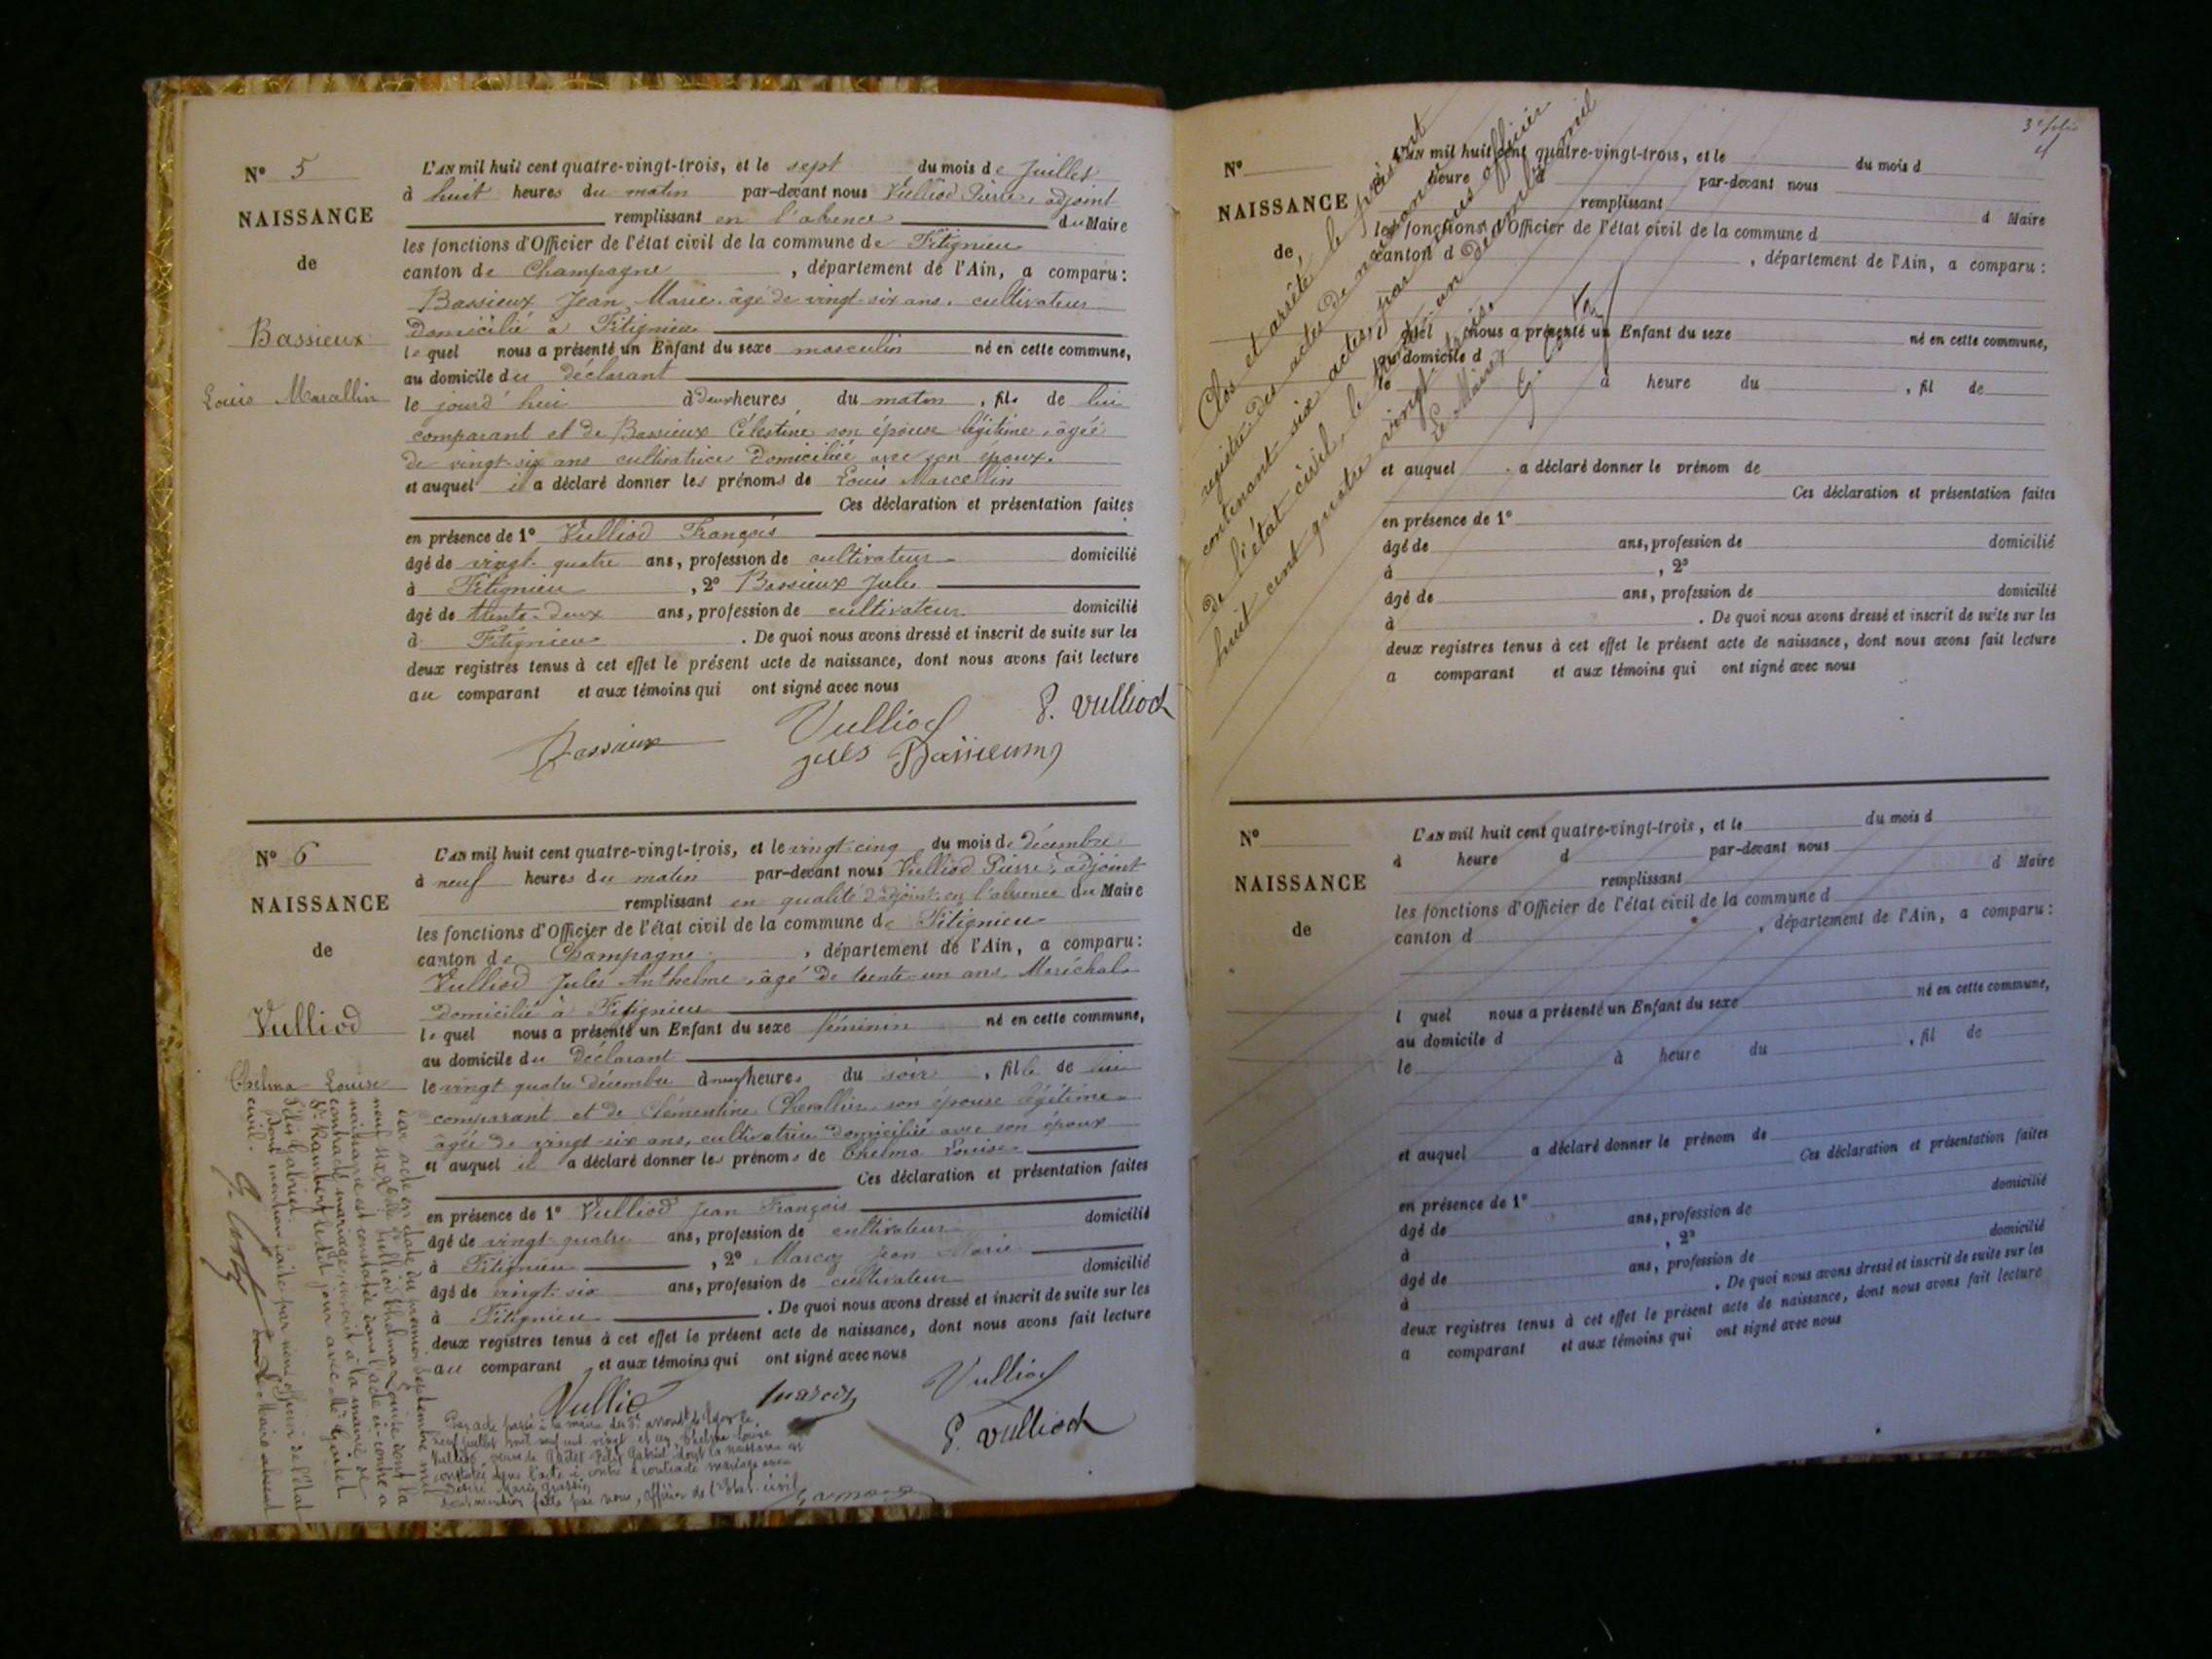 N° 5
NAISSANCE
de
Bassieux
Louis Marcellin
L'AN mil huit cent quatre-vingt-trois, et le sept du mois de Juillet
à huit heures du matin par-devant nous Vulliod Pierre, adjoint
remplissant en l'absence du Maire
les fonctions d'Officier de l'état civil de la commune de Fitignieu
canton de Champagne, département de l'Ain, a comparu :
Bassieux Jean Marie âgé de vingt-six ans, cultivateur
domicilié à Fitignieu
lequel nous a présenté un Enfant du sexe masculin né en cette commune,
au domicile du déclarant
le jourd'hui à deux heures du matin, fils de lui
comparant et de Bassieux Célestine son épouse légitime, âgée
de vingt-six ans cultivatrice domiciliée avec son époux.
et auquel il a déclaré donner les prénoms de Louis Marcellin
Ces déclaration et présentation faites
en présence de 1° Vulliod François
âgé de vingt-quatre ans, profession de cultivateur domicilié
à Fitignieu, 2° Bassieux Jules
âgé de trente-deux ans, profession de cultivateur domicilié
à Fitignieu. De quoi nous avons dressé et inscrit de suite sur les
deux registres tenus à cet effet le présent acte de naissance, dont nous avons fait lecture
au comparant et aux témoins qui ont signé avec nous
Bassieux Vulliod P. Vulliod
Jules Bassieux
N° 6
NAISSANCE
de
Vulliod
Thelma Louise
L'AN mil huit cent quatre-vingt-trois, et le vingt-cinq du mois de décembre
à neuf heures du matin par-devant nous Vulliod Pierre, adjoint
remplissant en qualité d'adjoint en l'absence du Maire
les fonctions d'Officier de l'état civil de la commune de Fitignieu
canton de Champagne, département de l'Ain, a comparu :
Vulliod Jules Anthelme, âgé de trente-un ans, Maréchal
domicilié à Fitignieu
lequel nous a présenté un Enfant du sexe féminin né en cette commune,
au domicile du déclarant
le vingt quatre décembre à neuf heures du soir, fille de lui
comparant et de Clémentine Chevallier son épouse légitime
âgée de vingt-six ans, cultivatrice domiciliée avec son époux
et auquel il a déclaré donner les prénoms de Thelma Louise
Ces déclaration et présentation faites
en présence de 1° Vulliod Jean François
âgé de vingt-quatre ans, profession de cultivateur domicilié
à Fitignieu, 2° Marcoz Jean Marie
âgé de vingt-six ans, profession de cultivateur domicilié
à Fitignieu. De quoi nous avons dressé et inscrit de suite sur les
deux registres tenus à cet effet le présent acte de naissance, dont nous avons fait lecture
au comparant et aux témoins qui ont signé avec nous
Vulliod Marcoz Vulliod
P. Vulliod
Par acte en date du premier septembre mil
neuf six Vulliod Thelma Louise dont la
naissance est constatée dans l'acte ci-contre a
contracté mariage à la mairie de
St Rambert jour avec Mr Goutet
Félix Gabriel.
Dont mention faite par nous officier de l'Etat
civil. Le Maire absent
Par acte passé à la mairie du arrondt de Lyon le
neuf juillet mil neuf cent vingt et un, Thelma Louise
Vulliod, veuve de Félix Gabriel dont la naissance est
constatée dans l'acte ci-contre a contracté mariage avec
Désiré Marie
dont mention faite par nous, officier de l'Etat-civil
3e folio
N°
NAISSANCE
de
L'AN mil huit cent quatre-vingt-trois, et le du mois d
à heure d par-devant nous
remplissant d Maire
les fonctions d'Officier de l'état civil de la commune d
canton d , département de l'Ain, a comparu :
l quel nous a présenté un Enfant du sexe né en cette commune,
au domicile d
le à heure du , fil de
et auquel a déclaré donner le prénom de
Ces déclaration et présentation faites
en présence de 1°
âgé de ans, profession de domicilié
à , 2°
âgé de ans, profession de domicilié
à . De quoi nous avons dressé et inscrit de suite sur les
deux registres tenus à cet effet le présent acte de naissance, dont nous avons fait lecture
a comparant et aux témoins qui ont signé avec nous
Clos et arrêté le présent
registre des actes de naissance
contenant six actes, par nous officier
de l'état civil, le trente-un décembre mil
huit cent quatre vingt-trois.
Le Maire
N°
NAISSANCE
de
L'AN mil huit cent quatre-vingt-trois, et le du mois d
à heure d par-devant nous
remplissant d Maire
les fonctions d'Officier de l'état civil de la commune d
canton d , département de l'Ain, a comparu :
l quel nous a présenté un Enfant du sexe né en cette commune,
au domicile d
le à heure du , fil de
et auquel a déclaré donner le prénom de
Ces déclaration et présentation faites
en présence de 1°
âgé de ans, profession de domicilié
à , 2°
âgé de ans, profession de domicilié
à . De quoi nous avons dressé et inscrit de suite sur les
deux registres tenus à cet effet le présent acte de naissance, dont nous avons fait lecture
a comparant et aux témoins qui ont signé avec nous